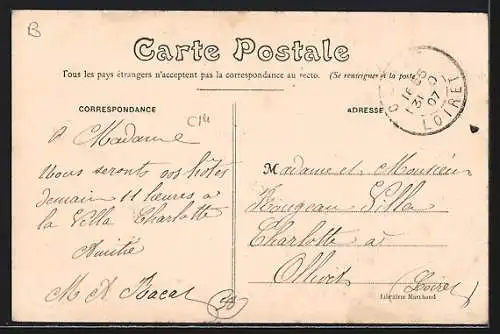 B
Carte Postale
Tous les pays étrangers n'acceptent pas la correspondance au recto. (Se renseigner à la poste
CORRESPONDANCE
ADRESSE
C14
16
31
07
LOIRET
Madame
Nous seronts vos hôtes
demain 11 heures a
la Villa Charlotte
Amitié
M A Bacat
Madame et Monsieur
Rougeau Villa
Charlotte à
Olivet
(Loiret)
Librairie Marchand